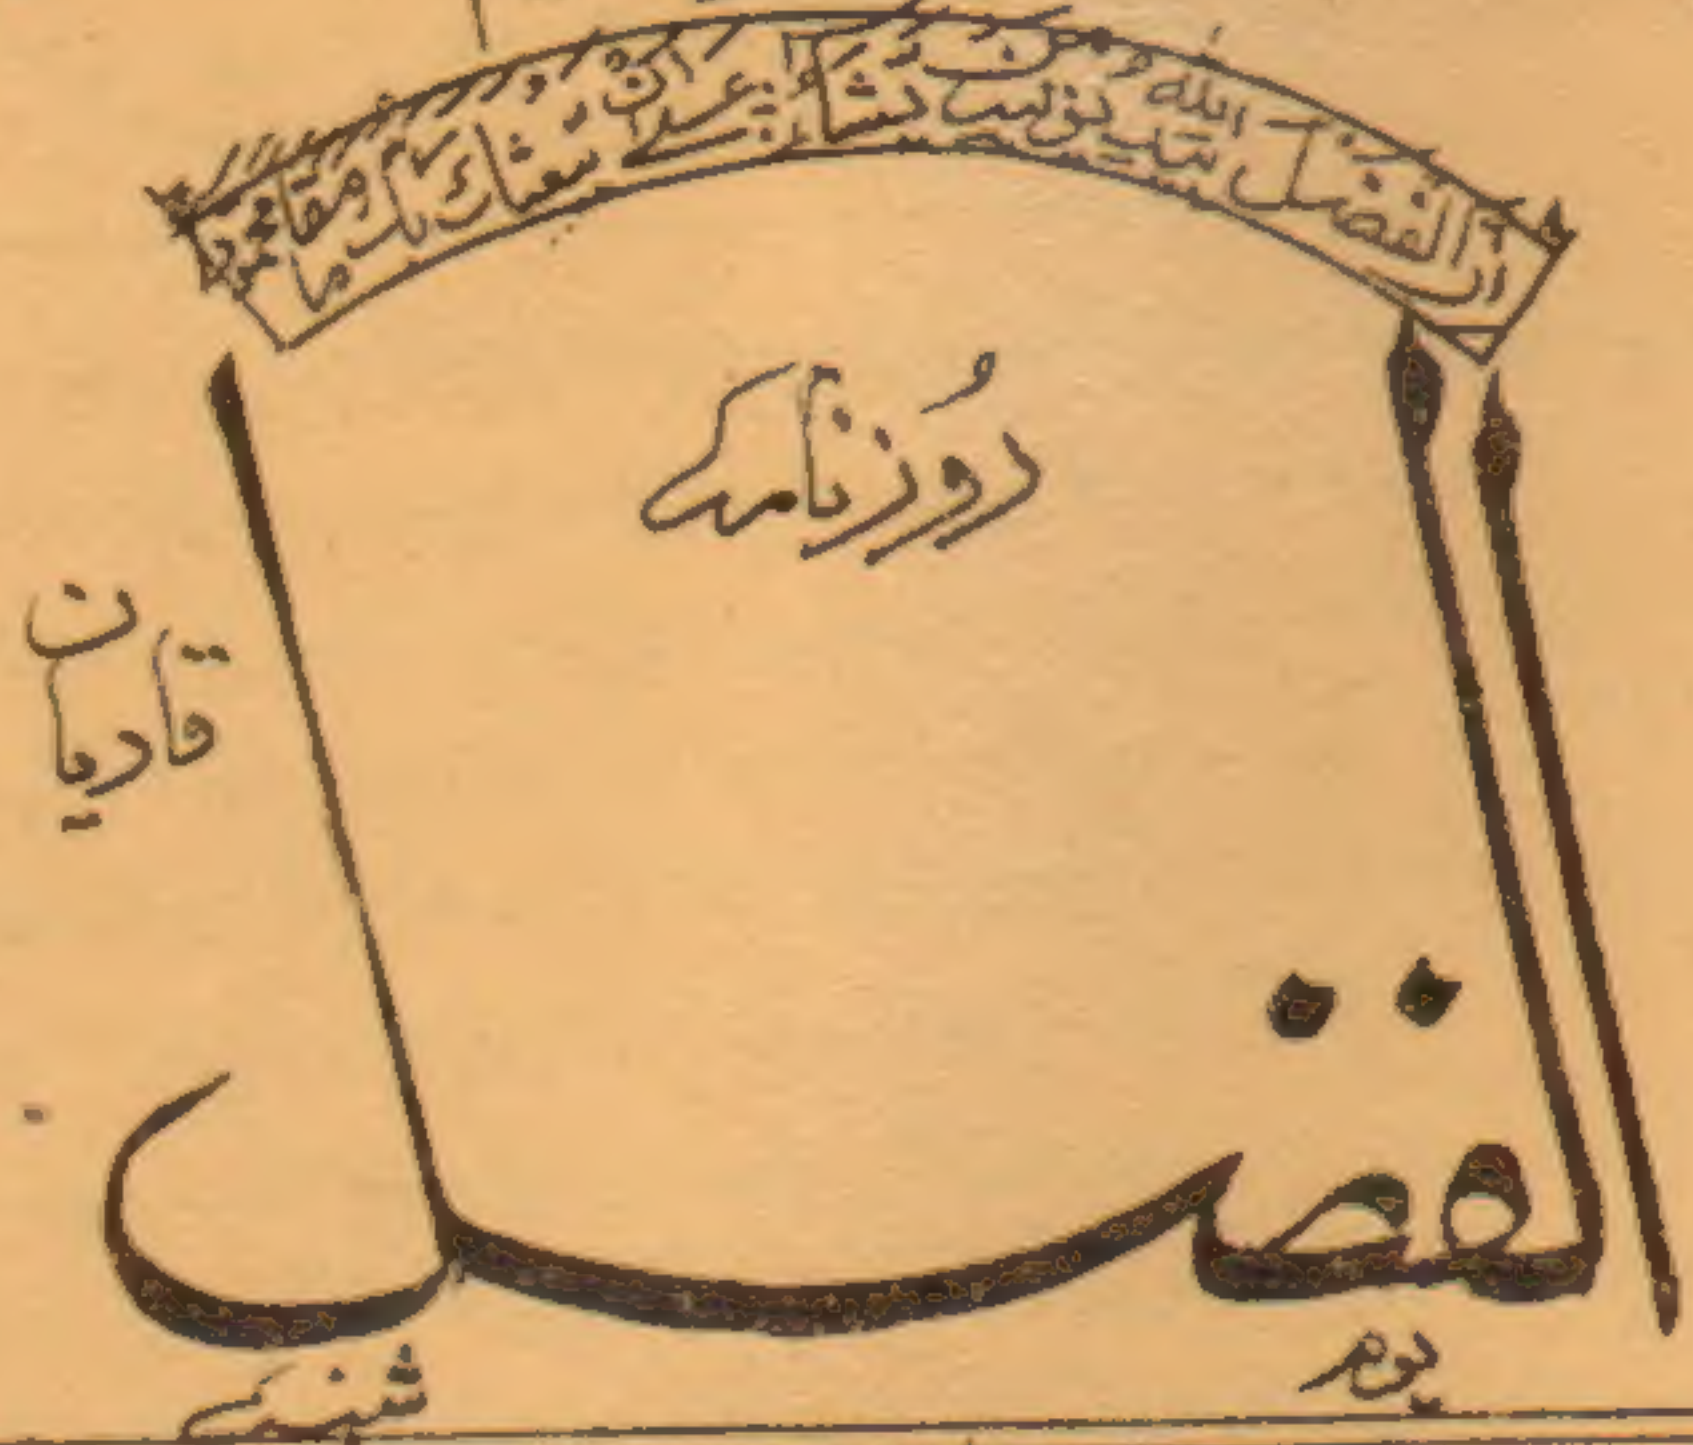 ان الفضل بید اللہ یؤتیہ من یشاء عسیٰ ان یبعثک ربک مقاما محمودا
روزنامہ
الفضل
قادیان
یوم
شنبہ